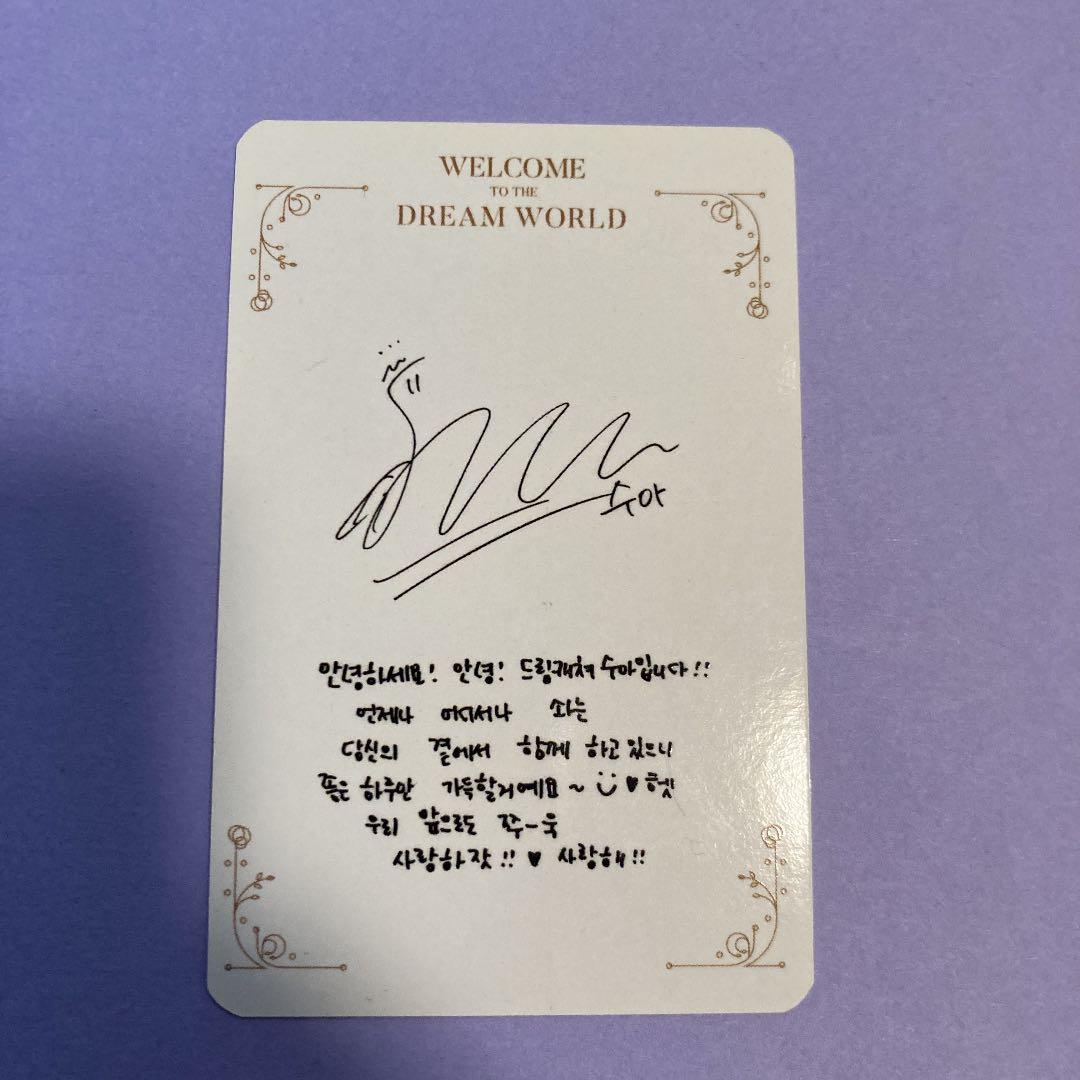 WELCOME
TO THE
DREAM WORLD
수아
안녕하세요! 안녕! 드림캐쳐 수아입니다!!
언제나 어디서나 솨는
당신의 곁에서 함께 하고 있으니
좋은 하루만 가득할거예요~ ♥ 헷
우리 앞으로도 쭈-욱
사랑하잣!! ♥ 사랑해!!